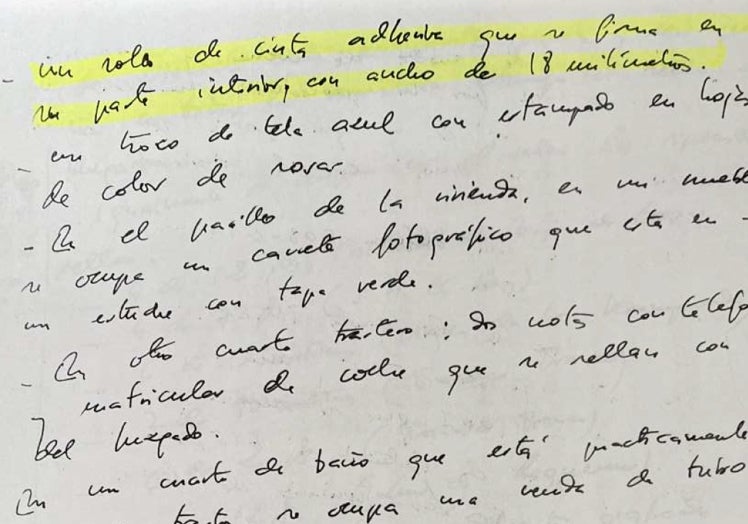 - un rollo de cinta adhesiva que se firma en
su parte interior, con ancho de 18 milimetros.
- un trozo de tela azul con estampado en hojas
de color de rosas.
- En el pasillo de la vivienda, en un mueble
se ocupa un carrete fotográfico que esta en -
un estuche con tapa verde.
- En otro cuarto trastero: dos notas con telefo
matriculas de coche que se sellan con
del Juzgado.
En un cuarto de baño que está practicamente
se ocupa una venda de tubo